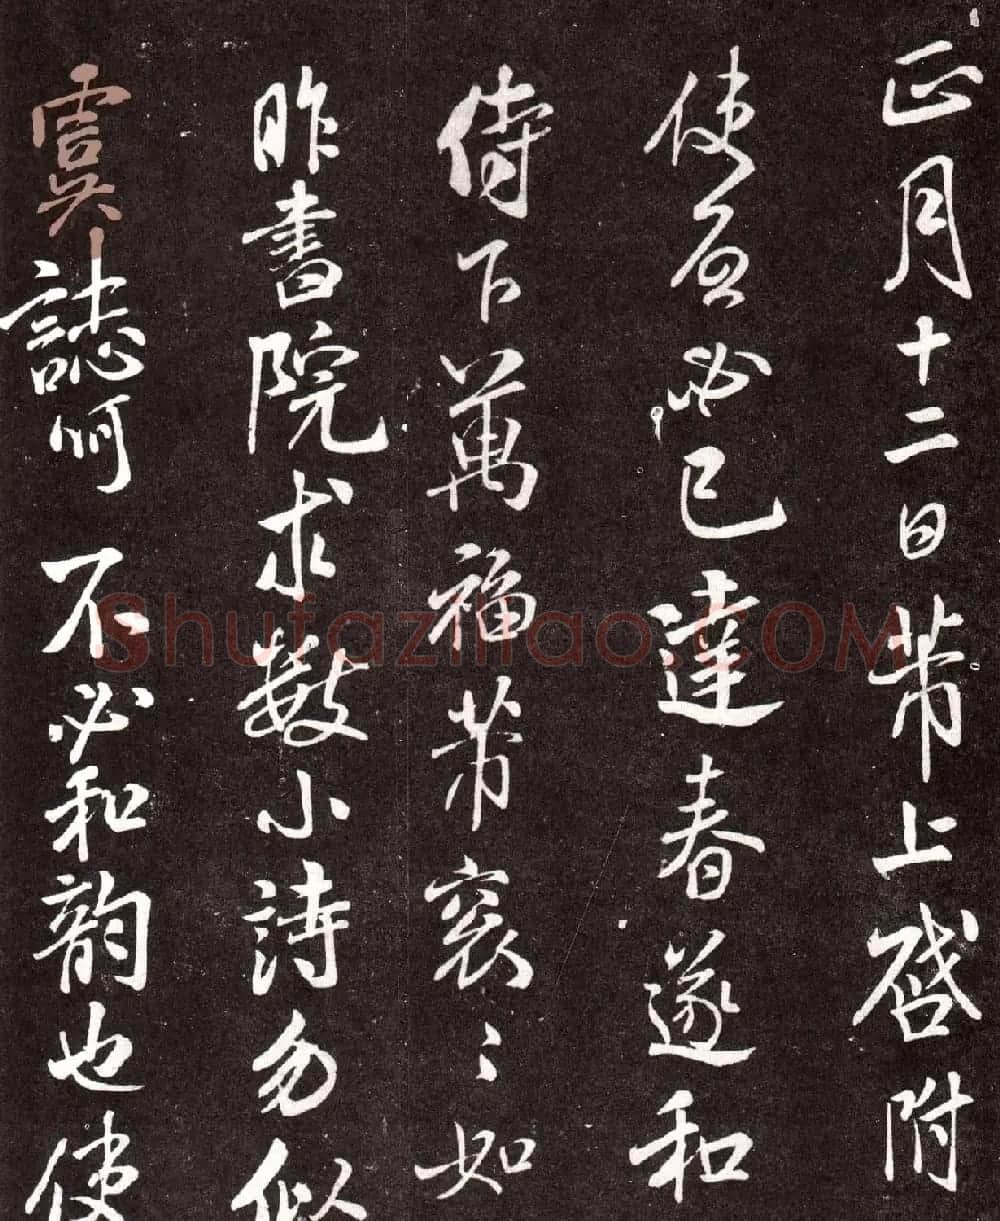 正月十二日芾上啓附
使爲必已達春遂和
侍下萬福芾衮〻如
昨書院求數小詩勿似
虞誌何不必和韵也使
Shufaziliao.COM